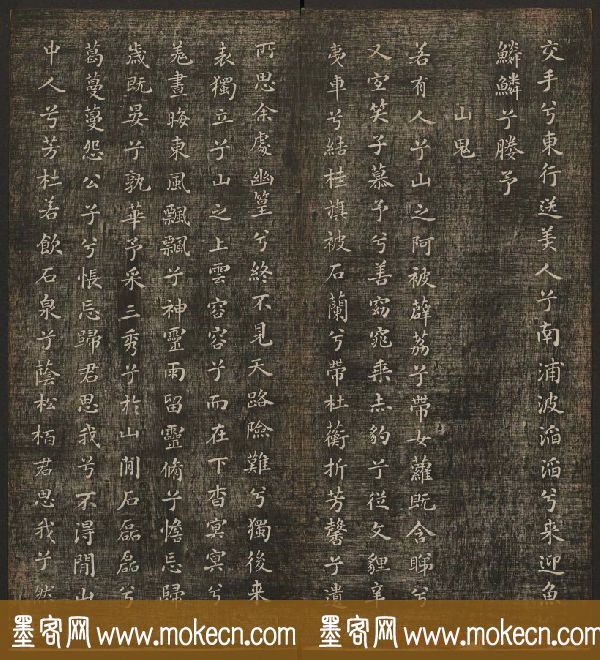 交手兮東行送美人兮南浦波滔滔兮來迎魚
鱗鱗兮媵予
山鬼
若有人兮山之阿被薜荔兮帶女蘿既含睇兮
又宜笑子慕予兮善窈窕乘赤豹兮從文貍辛
夷車兮結桂旗被石蘭兮帶杜蘅折芳馨兮遺
所思余處幽篁兮終不見天路險難兮獨後來
表獨立兮山之上雲容容兮而在下杳冥冥兮
羌晝晦東風飄飄兮神靈雨留靈脩兮憺忘歸
歲既晏兮孰華予采三秀兮於山間石磊磊兮
葛蔓蔓怨公子兮悵忘歸君思我兮不得閒山
中人兮芳杜若飲石泉兮蔭松栢君思我兮然
墨客网 www.mokecn.com 墨客网 www.mokecn.com